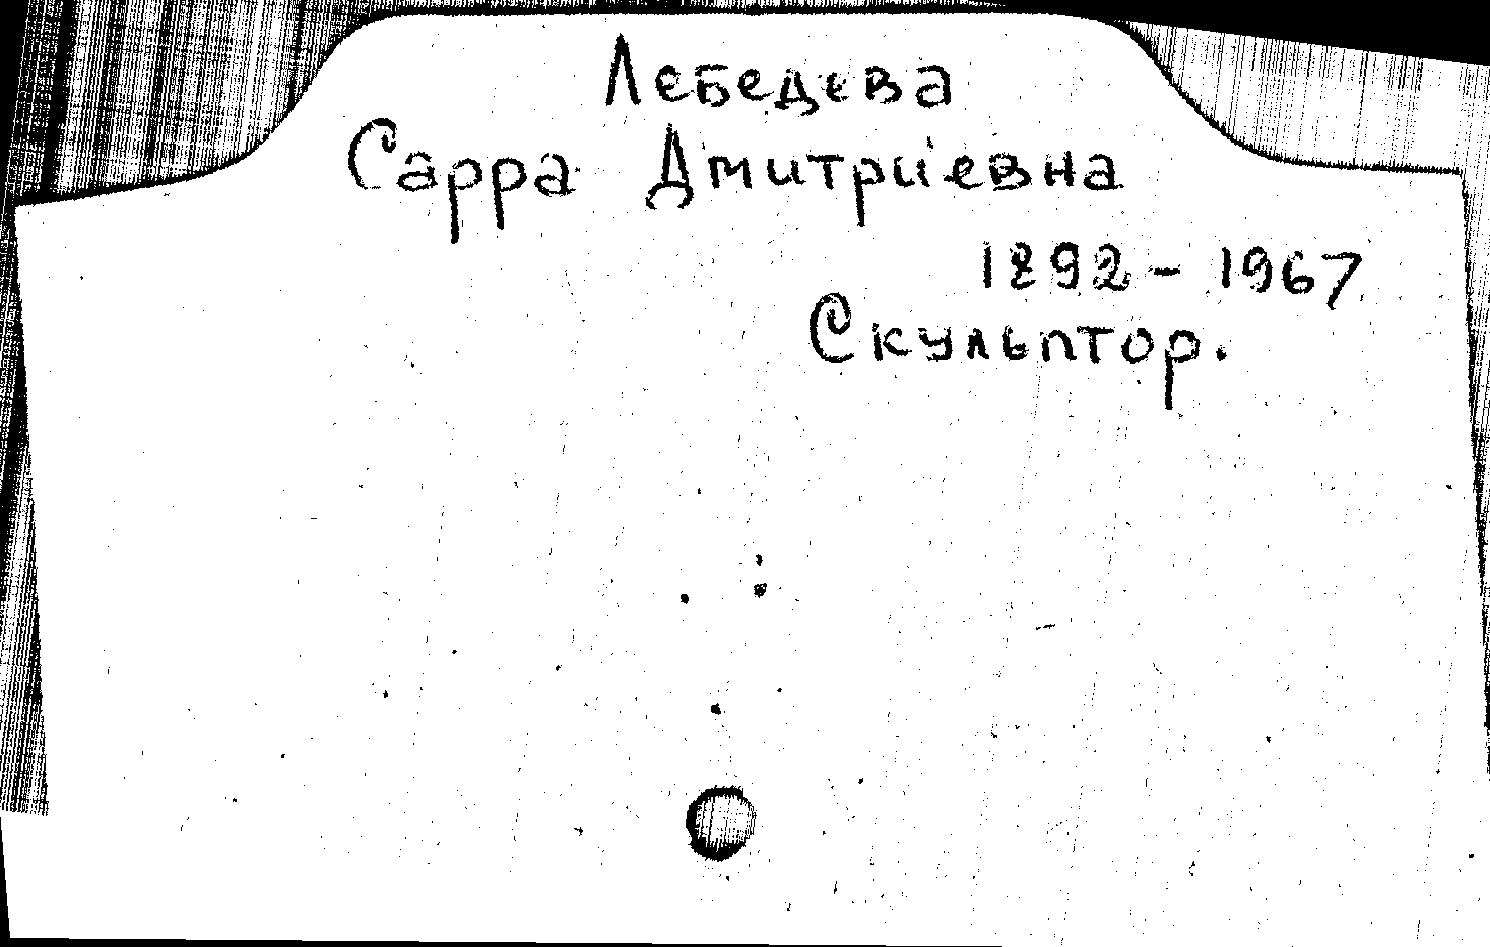 Лебедева
Сарра Дмитриевна
1892 - 1967
Скульптор.